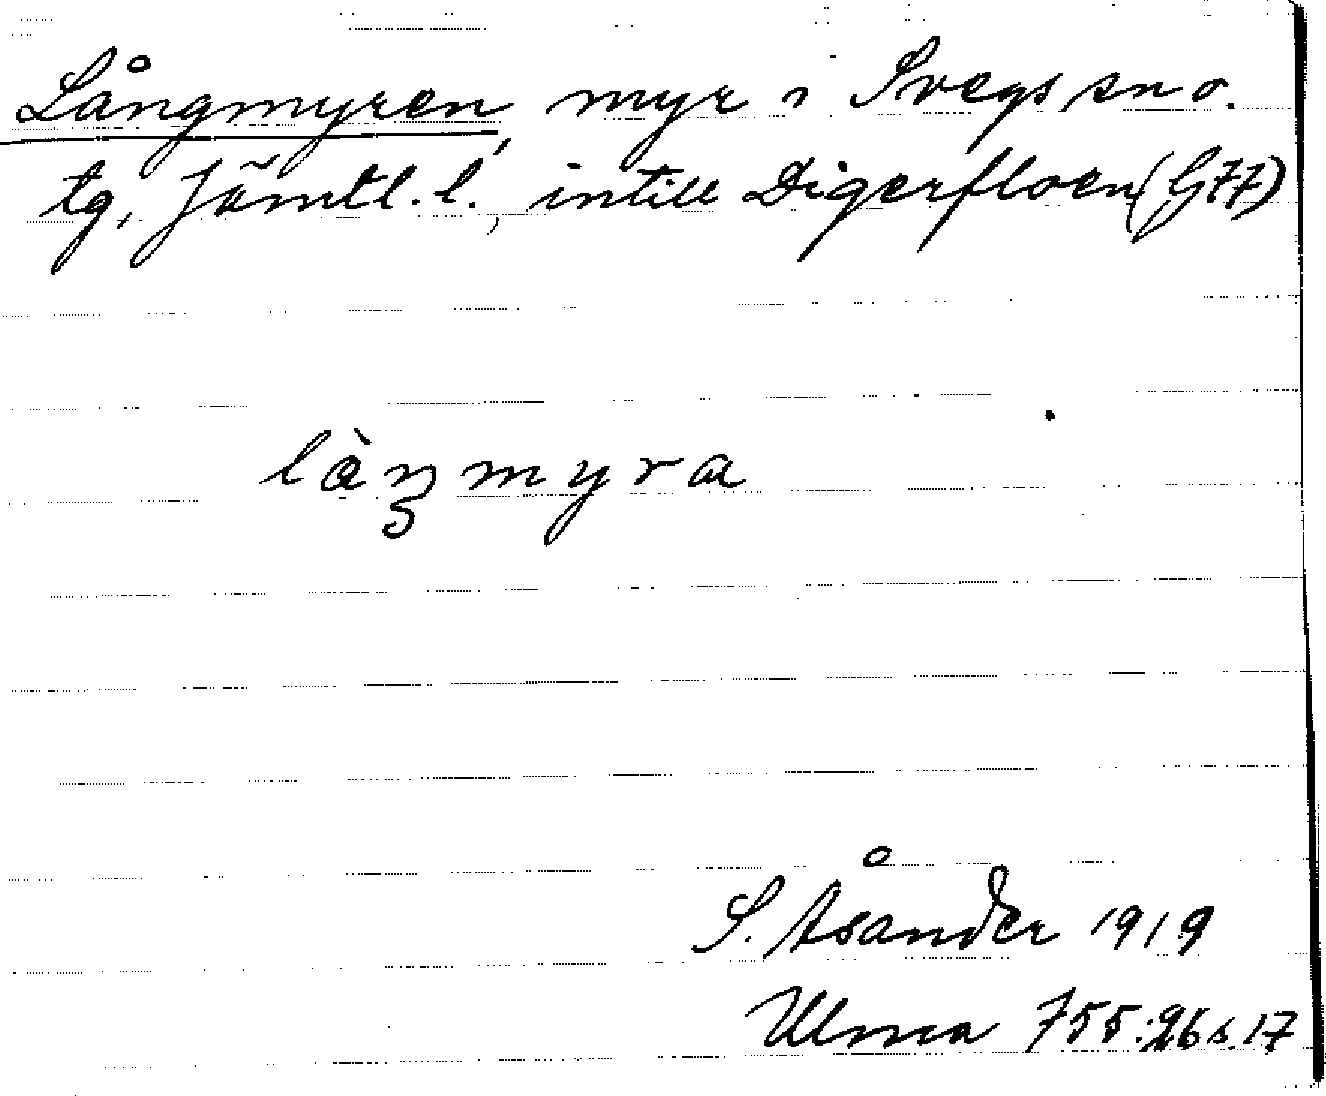 Långmyren, myr i Svegs sn o.
tg, Jämtl. l., intill Digerfloen (G77)
làŋmyra
S. Åsander 1919
Ulma 755:26 s. 17